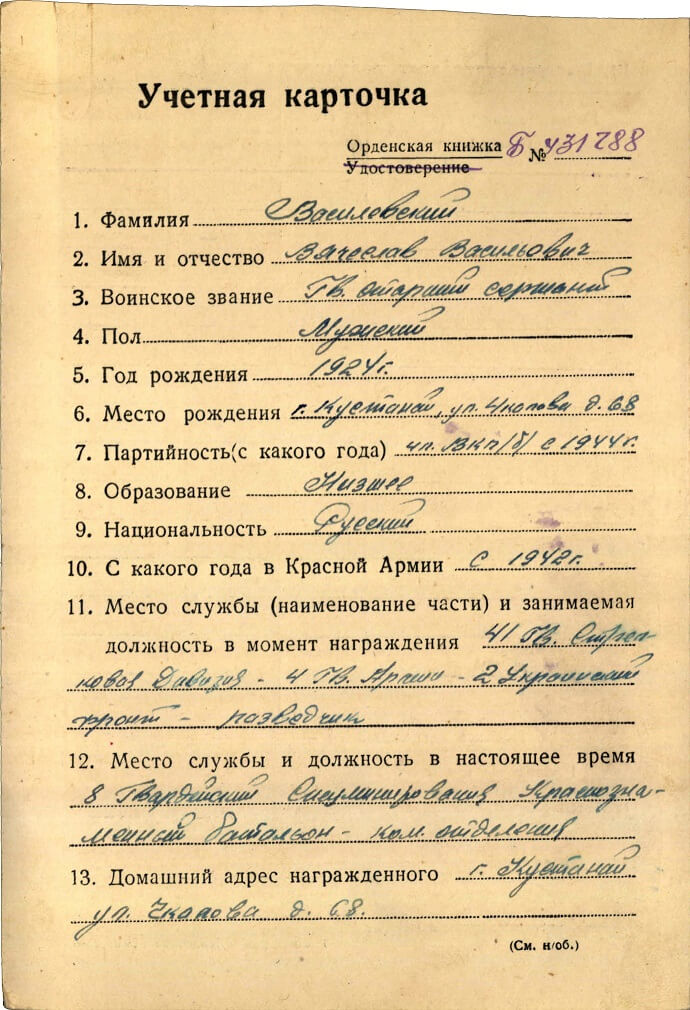 Учетная карточка
Орденская книжка Б № 431788
Удостоверение
1. Фамилия Василевский
2. Имя и отчество Вячеслав Васильович
3. Воинское звание Гв. старший сержант
4. Пол Мужский
5. Год рождения 1924г.
6. Место рождения г. Кустанай, ул. Чкалова д. 68
7. Партийность (с какого года) чл. ВКП/б/ с 1944г.
8. Образование Низшее
9. Национальность Русский
10. С какого года в Красной Армии с 1942г.
11. Место службы (наименование части) и занимаемая
должность в момент награждения 41 Гв. Стрел-
ковая Дивизия - 4 Гв. Армии - 2 Украинский
фронт - разведчик
12. Место службы и должность в настоящее время
8 Гвардейский Краснозна-
менный батальон - ком. отделения
13. Домашний адрес награжденного г. Кустанай
ул. Чкалова д. 68.
(См. н/об.)